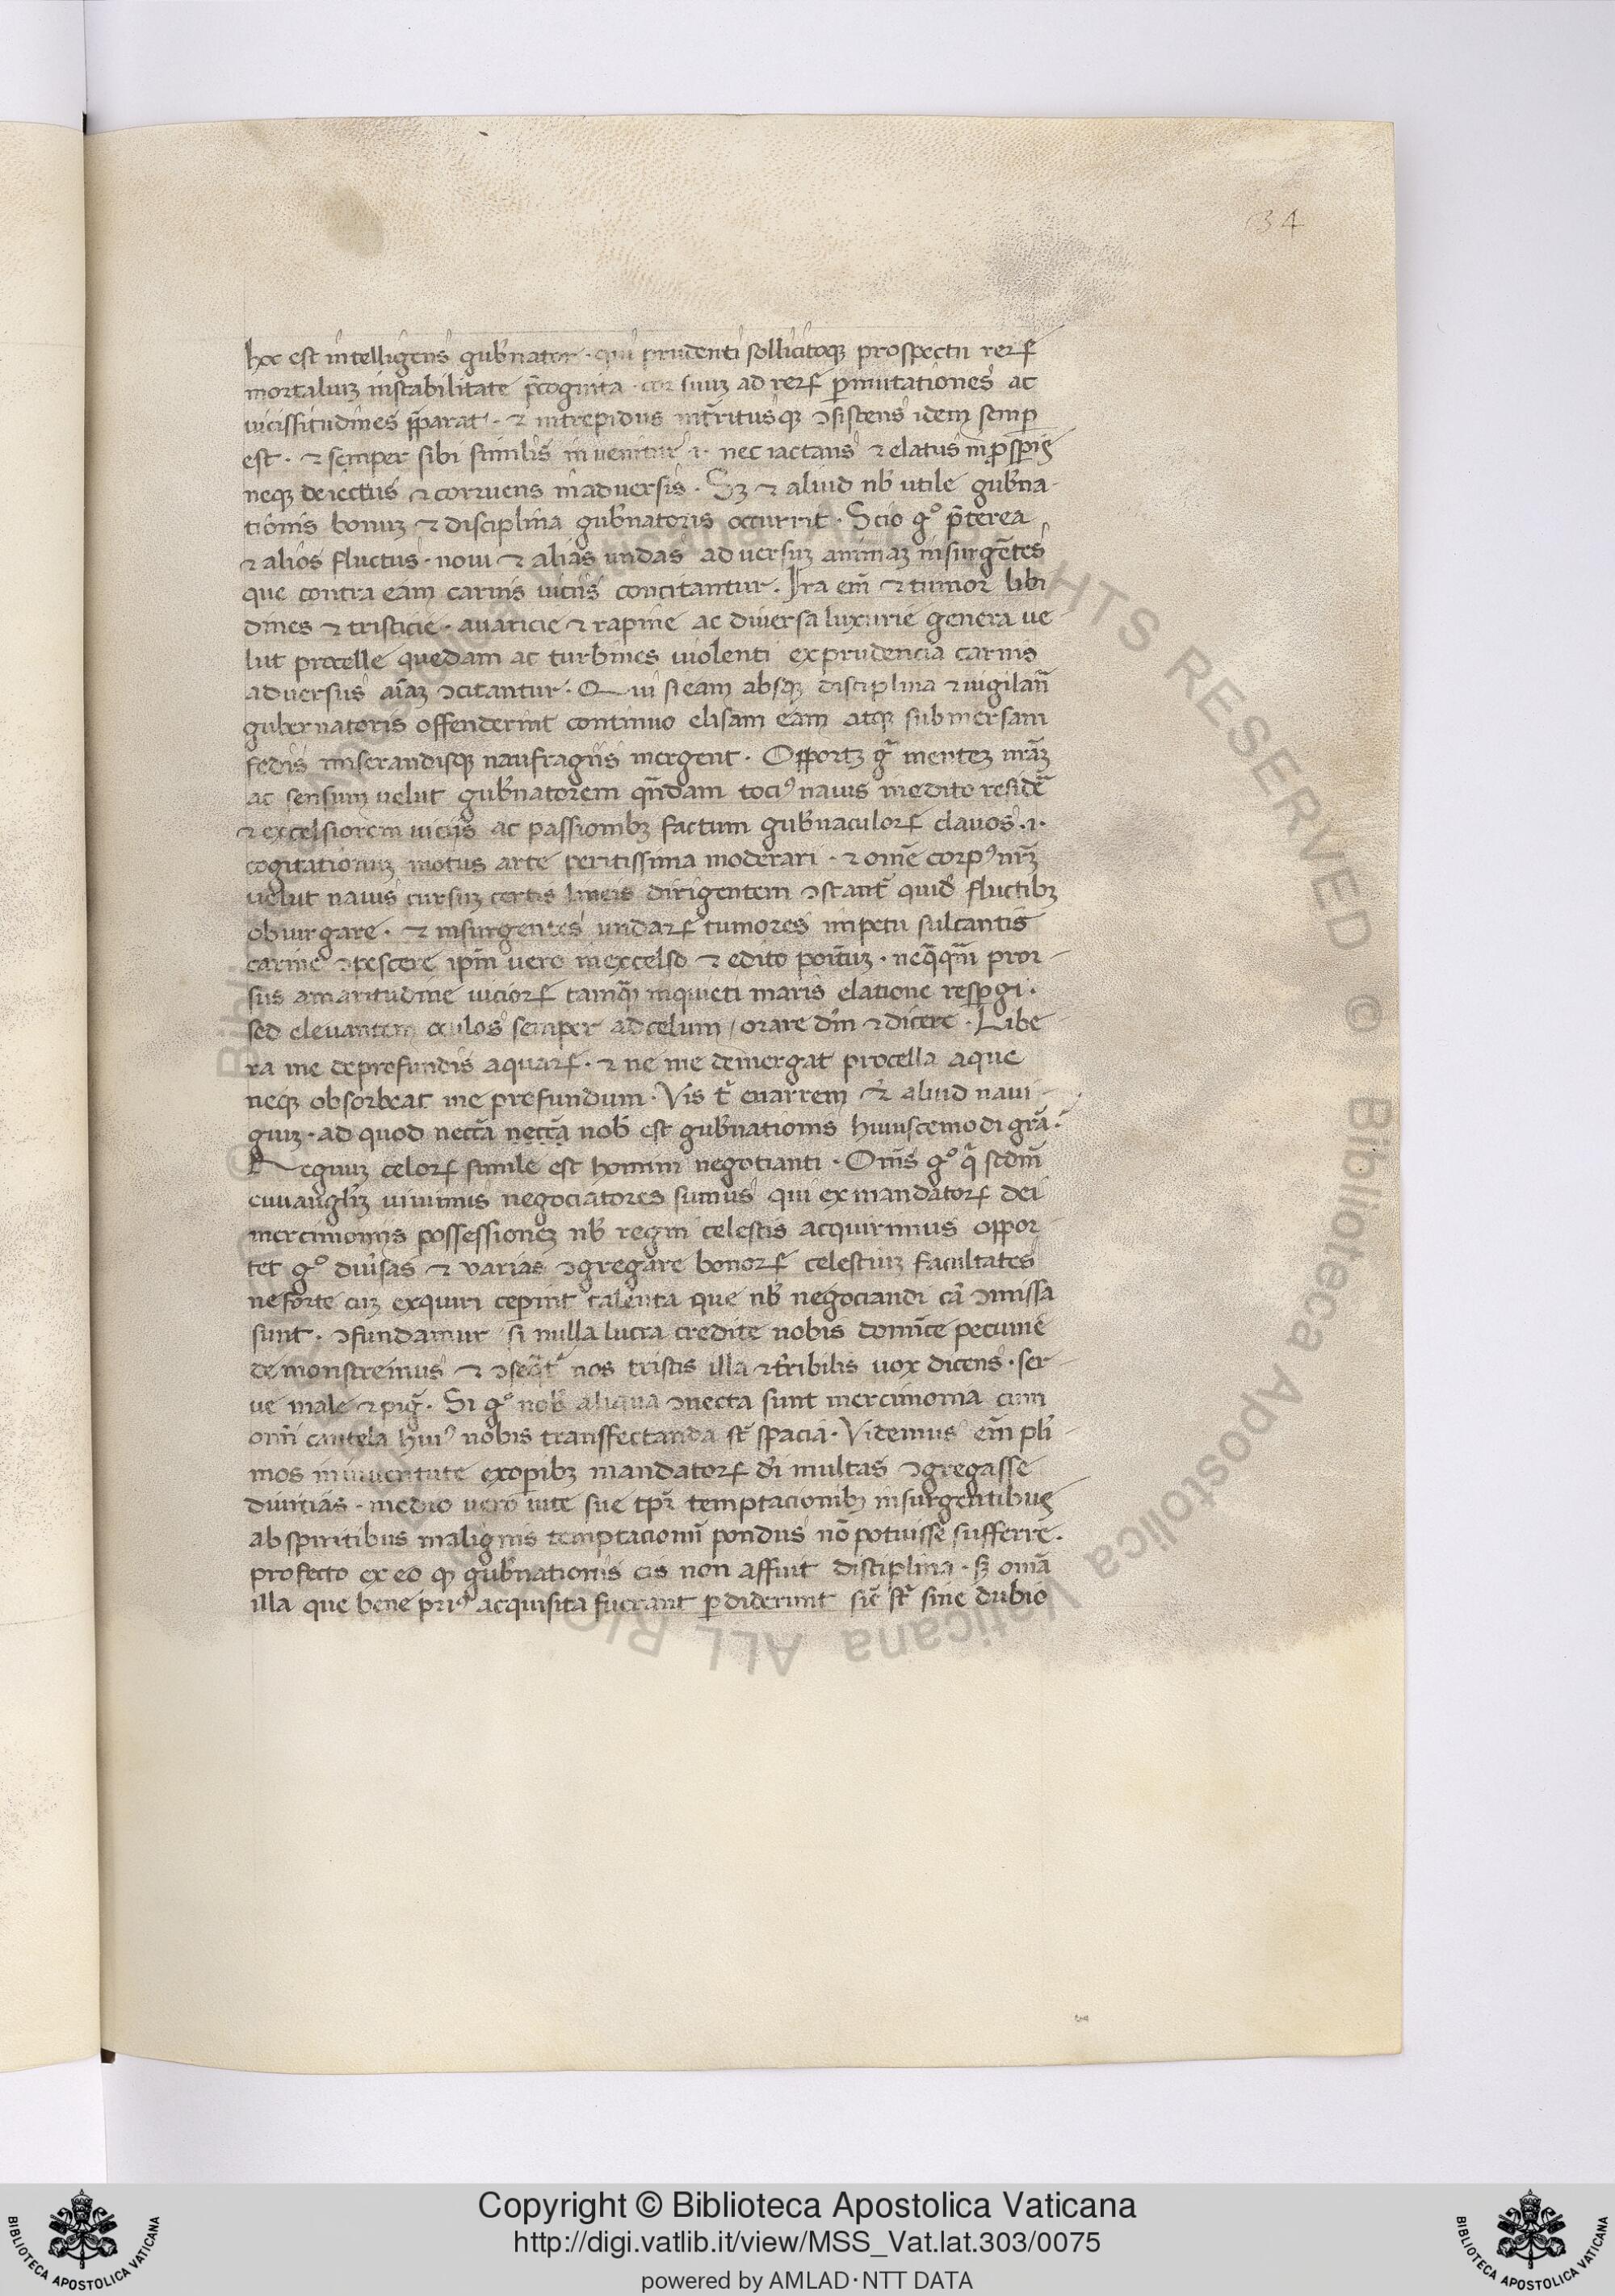 34
hoc est intelligens gub̄nator · qui prudenti sollicitoqꝫ prospectu rerꝝ
mortaliuꝫ instabilitate p̄cognita · cor suuꝫ ad rerꝝ ꝑmutationes ac
uicissitudines p̄parat · ⁊ intrepidus int̄ritusqꝫ ↄsistens idem semꝑ
est · ⁊ semper sibi similis inuenitur · i · nec iactans ⁊ elatus in ꝓsꝑis
neqꝫ deiectus ⁊ corruens in aduersis · Sꝫ ⁊ aliud nb̄ utile gub̄na-
tionis bonuꝫ ⁊ disciplina gub̄natoris occurrit · Scio gͦ p̄terea
⁊ alios fluctus · noui ⁊ alias undas aduersuꝫ animaꝫ insurgētes
que contra eam carnis uiciis concitantur · Ira em̄ ⁊ timor libi
dines ⁊ tristicie · auaricie ⁊ rapine ac diuersa luxurie genera ue
lut procelle quedam ac turbines uiolenti ex prudencia carnis
aduersus aīaꝫ ↄcitantur · Qui si eam absqꝫ disciplina ⁊ uigilan̄
gubernatoris offenderint continuo elisam eam atqꝫ submersam
fedis miserandisqꝫ naufragiis mergent · Opportꝫ gͦ menteꝫ nr̄aꝫ
ac sensum uelut gub̄natorem qn̄dam tociꝰ nauis in edito residē
⁊ excelsiorem uiciis ac passionibꝫ factum gub̄naculorꝝ clauos · i ·
cogitationuꝫ motus arte peritissima moderari · ⁊ om̄e corpꝰ nr̄ꝫ
uelut nauis cursuꝫ certis lineis dirigentem ↄstant̄ quid̄ fluctibꝫ
obuirgare · ⁊ insurgentes undarꝝ tumores impetu sulcantis
carine ↄpescere ip̄m uero in excelso ⁊ edito poītuꝫ · neq̄qm̄ pror-
sus amaritudine uiciorꝝ tamqꝫ inquieti maris elatione resꝑgi ·
sed eleuantem oculos semper ad celum / orare dm̄ ⁊ dicere · Libe-
ra me de profundis aquarꝝ · ⁊ ne me demergat procella aque
neqꝫ obsorbeat me profundum · Vis t̄ enarrem ⁊ aliud naui-
giuꝫ · ad quod neccā neccā nob̄ est gub̄nationis huiuscemodi grā ·
Regnuꝫ celorꝝ simile est homini negotianti · Om̄s gͦ q̄ scdm̄
euuangliꝫ uiuimus negociatores sumus qui ex mandatorꝝ dei
mercimoniis possessioneꝫ nb̄ regni celestis acquirimus oppor-
tet gͦ diūsas ⁊ varias ↄgregare bonorꝝ celestiuꝫ facultates
ne forte cuꝫ exquiri ceꝑint talenta que nb̄ negociandi cā ↄmissa
sunt · ↄfundamur si nulla lucra credite nobis dominīce pecunie
demonstremus ⁊ ↄseq̄t̄ nos tristis illa ⁊ t̄ribilis uox dicens · ser-
ue male ⁊ piḡ · Si gͦ nob̄ aliqua ↄnecta sunt mercimonia cum
om̄i cautela huiꝰ nobis transfectanda st̄ spacia · Videmus em̄ pl̄i-
mos in iuuentute ex opibꝫ mandatorꝝ dī multas ↄgregasse
diuitias · medio uero uite sue tp̄r̄ temptacionibꝫ insurgentibus
ab spiritibus malignis temptacionū pondus nō potuisse sufferre ·
profecto ex eo ꝙ gub̄nationis eis non affuit disciplina · sꝫ omā
illa que bene priꝰ acquisita fuerant ꝑdiderunt sic̄ st̄ sine dubio
Copyright © Biblioteca Apostolica Vaticana
http://digi.vatlib.it/view/MSS_Vat.lat.303/0075
powered by AMLAD·NTT DATA